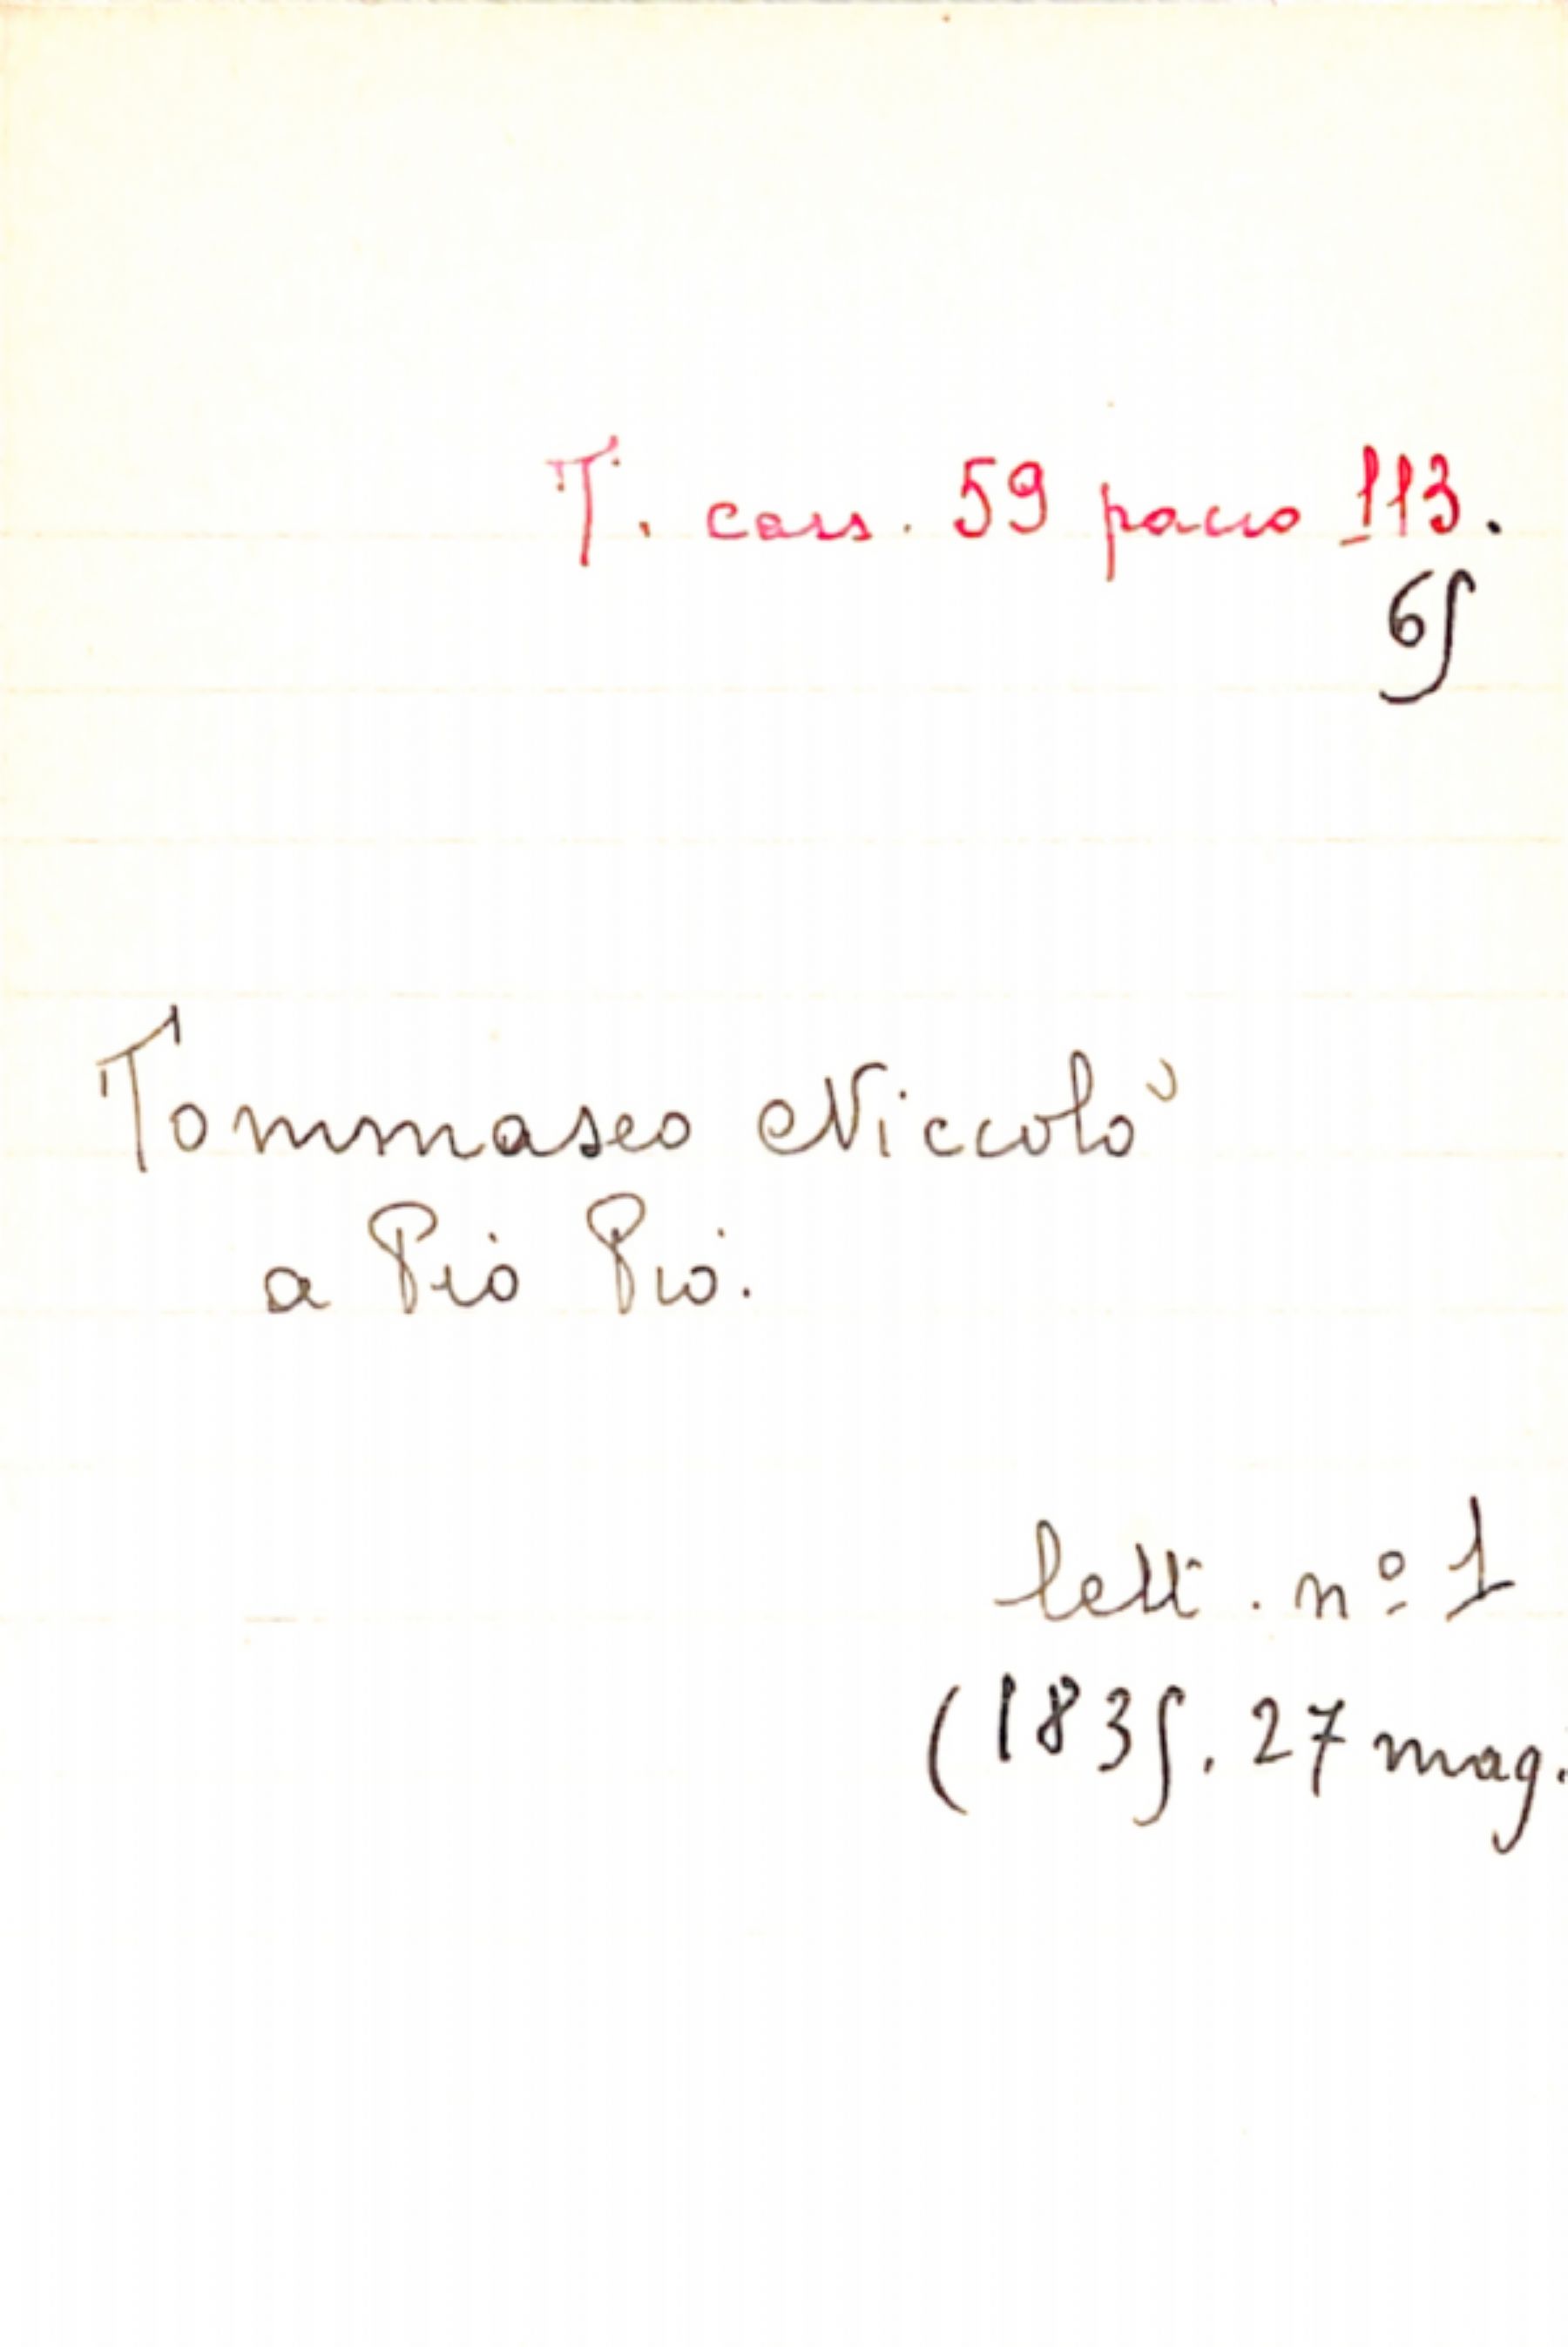 T. cass. 59 pacco 113.
65
Tommaseo Niccolò
a Pio Pio.
lett. nº 1
(1835. 27 mag.